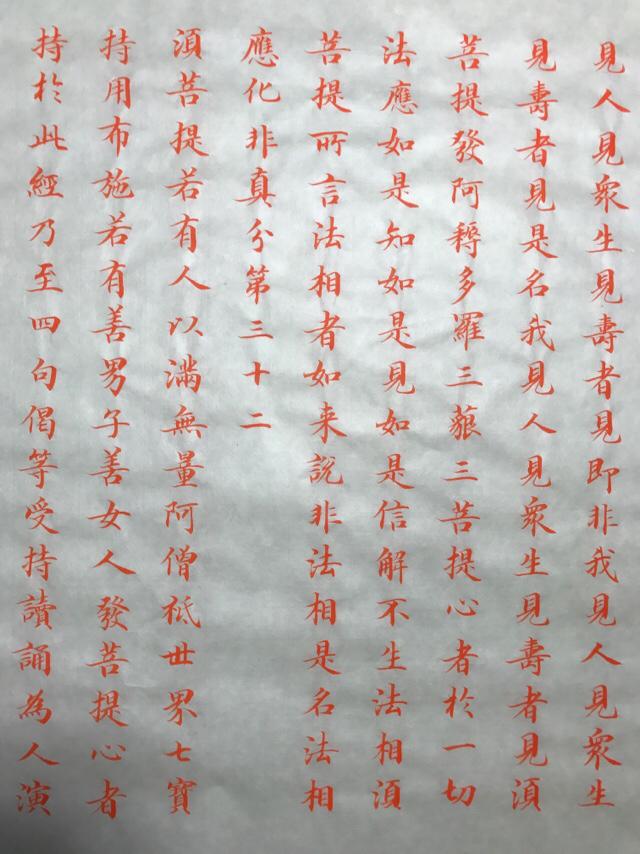 見人見衆生見壽者見即非我見人見衆生
見壽者見是名我見人見衆生見壽者見須
菩提發阿耨多羅三藐三菩提心者於一切
法應如是知如是見如是信解不生法相須
菩提所言法相者如来說非法相是名法相
應化非真分第三十二
須菩提若有人以滿無量阿僧祇世界七寶
持用布施若有善男子善女人發菩提心者
持於此經乃至四句偈等受持讀誦為人演